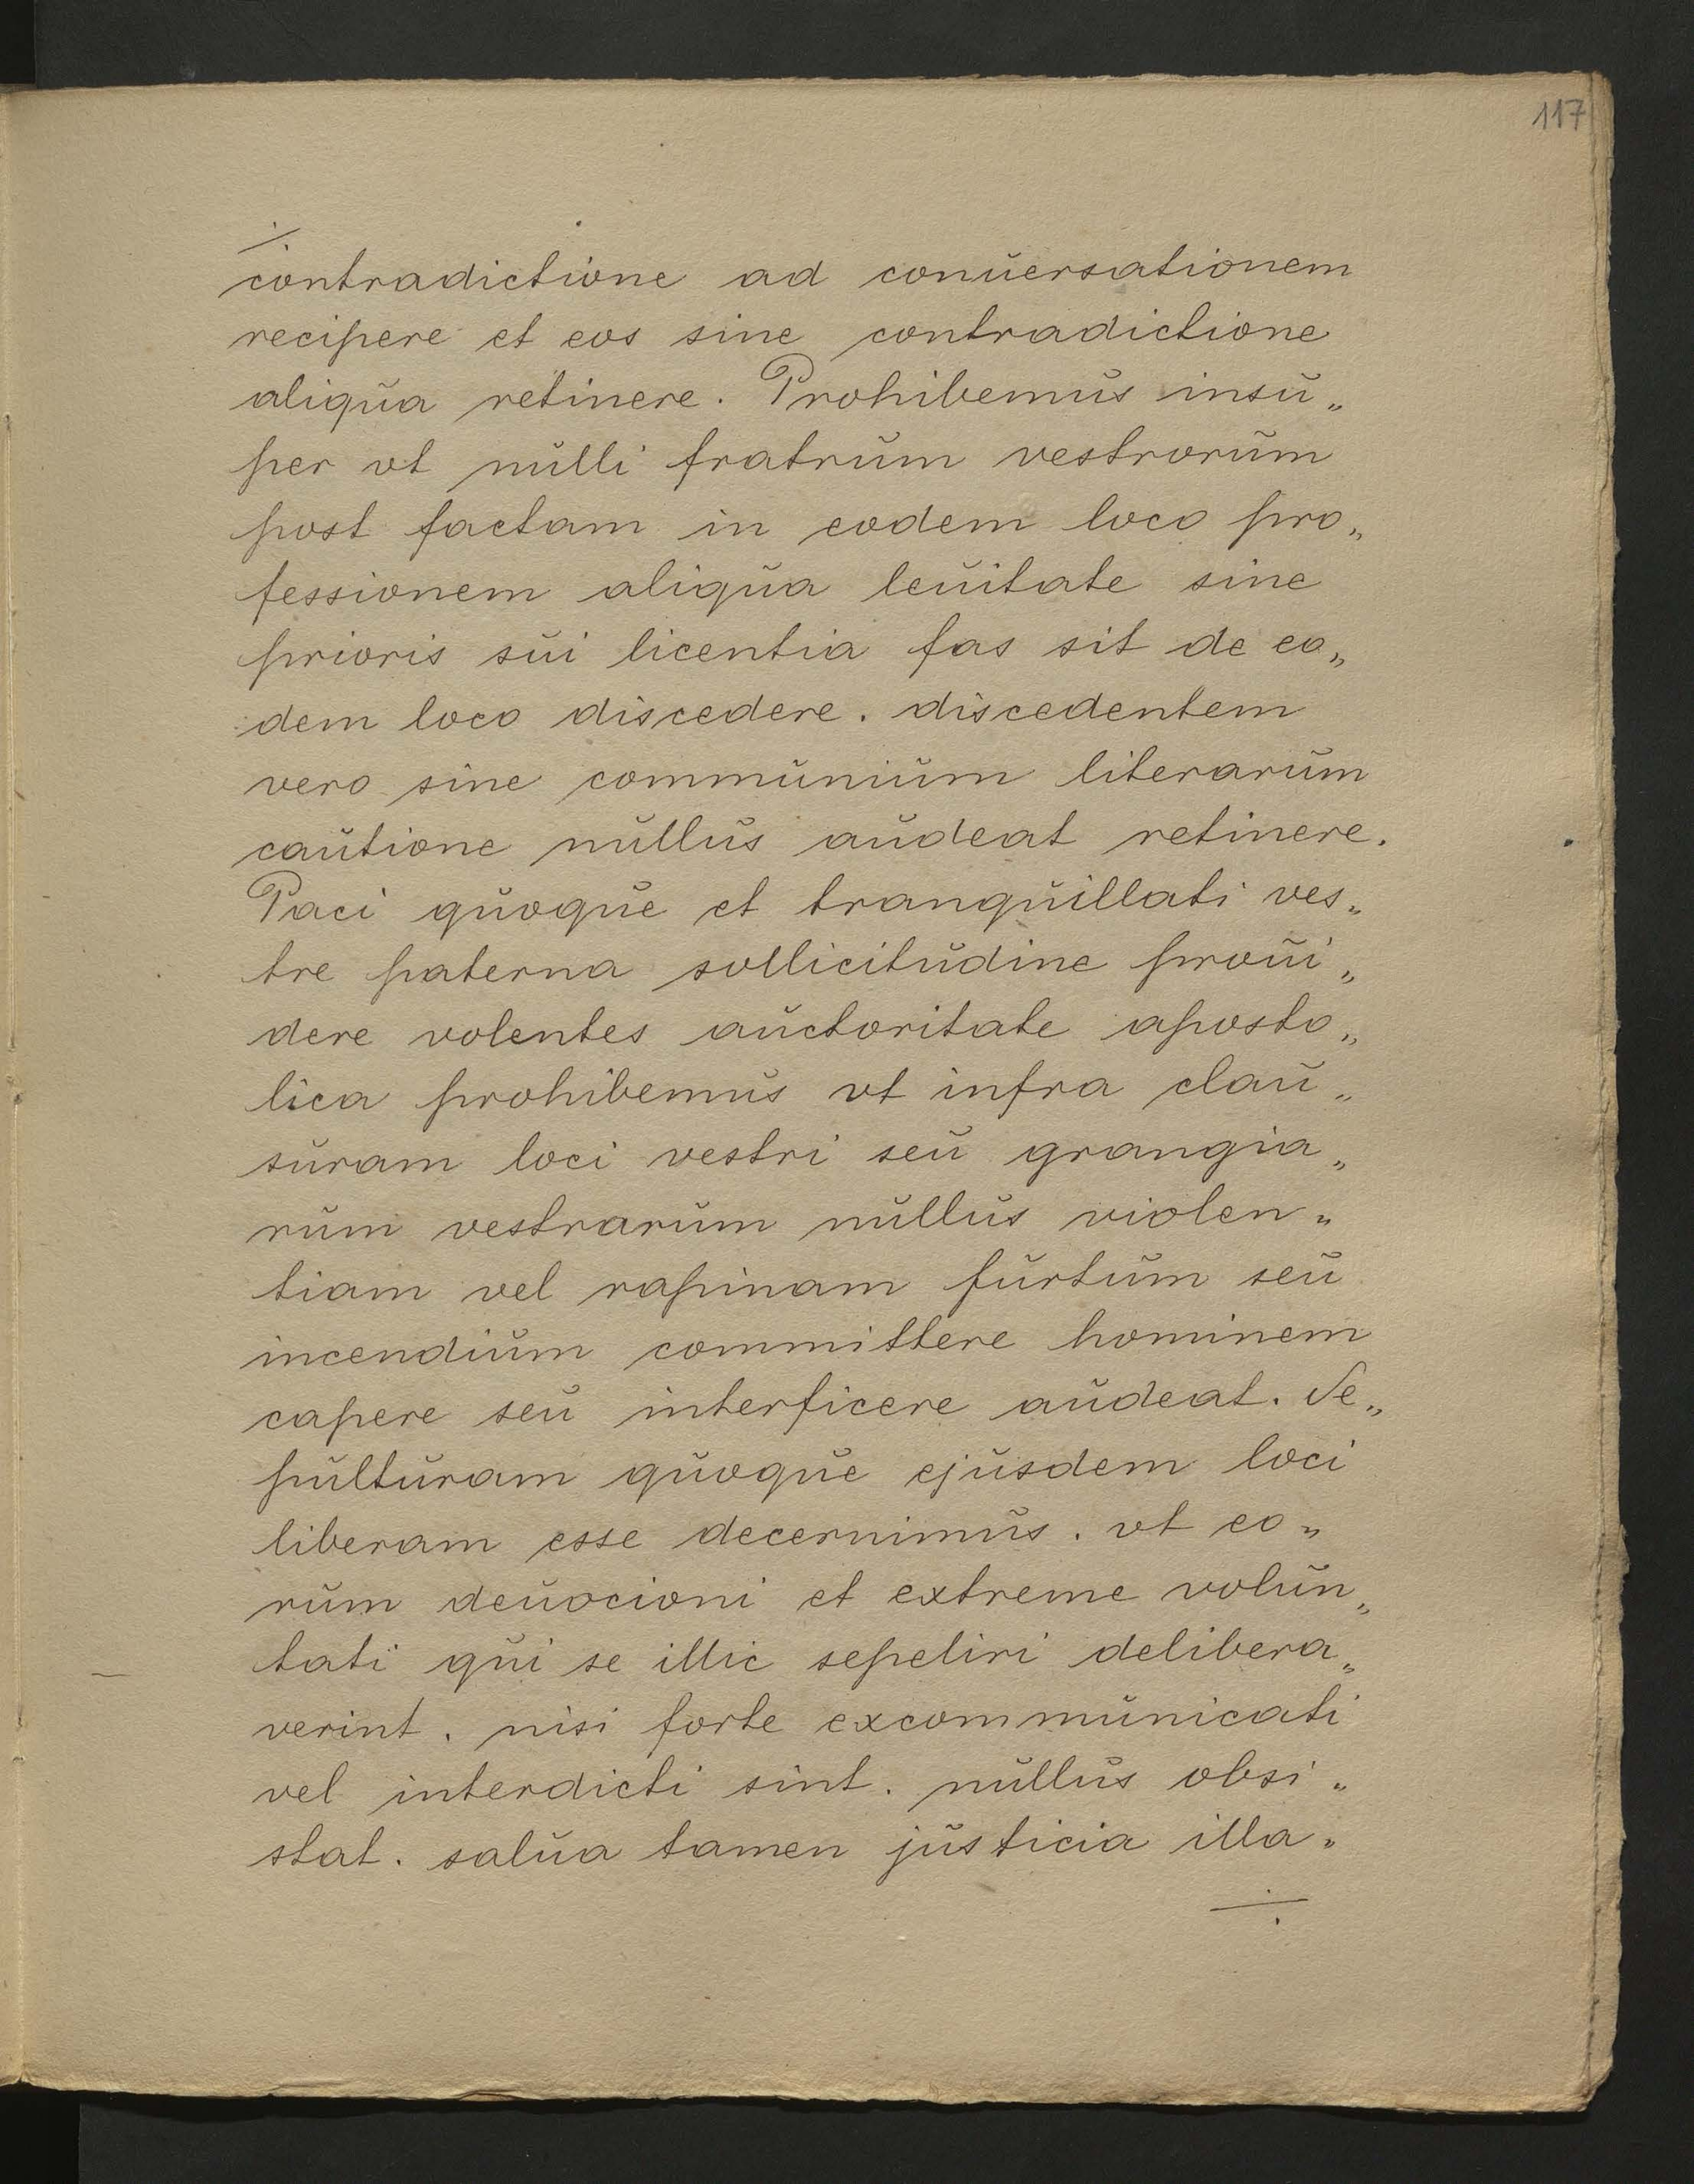 117
÷
contradictione ad conŭersationem
recipere et eos sine contradictione
aliqŭa retinere. Prohibemŭs insŭ„
per vt nŭlli fratrŭm vestrorŭm
post factam in eodem loco pro„
fessionem aliqŭa leŭitate sine
prioris sŭi licentia fas sit de eo„
dem loco discedere. discedentem
vero sine commŭniŭm literarŭm
caŭtione nŭllŭs aŭdeat retinere.
Paci qŭoqŭe et tranqŭillati ves„
tre paterna sollicitŭdine proŭi„
dere volentes aŭctoritate aposto„
lica prohibemŭs vt infra claŭ„
sŭram loci vestri seŭ grangia„
rŭm vestrarŭm nŭllŭs violen„
tiam vel rapinam fŭrtŭm seŭ
incendiŭm committere hominem
capere seŭ interficere aŭdeat. Se„
pŭltŭram qŭoqŭe ejŭsdem loci
liberam esse decernimŭs. vt eo„
rŭm deŭocioni et extreme volŭn„
tati qŭi se illic sepeliri delibera„
verint. nisi forte excommŭnicati
vel interdicti sint. nŭllŭs obsi„
stat. salŭa tamen jŭsticia illa„
÷